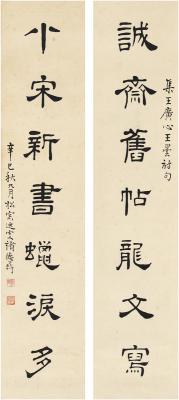 集王廣心王曇詩句
誠齋舊帖龍文寫
小宋新書蠟淚多
辛巳秋九月松窗逸人褚德彝